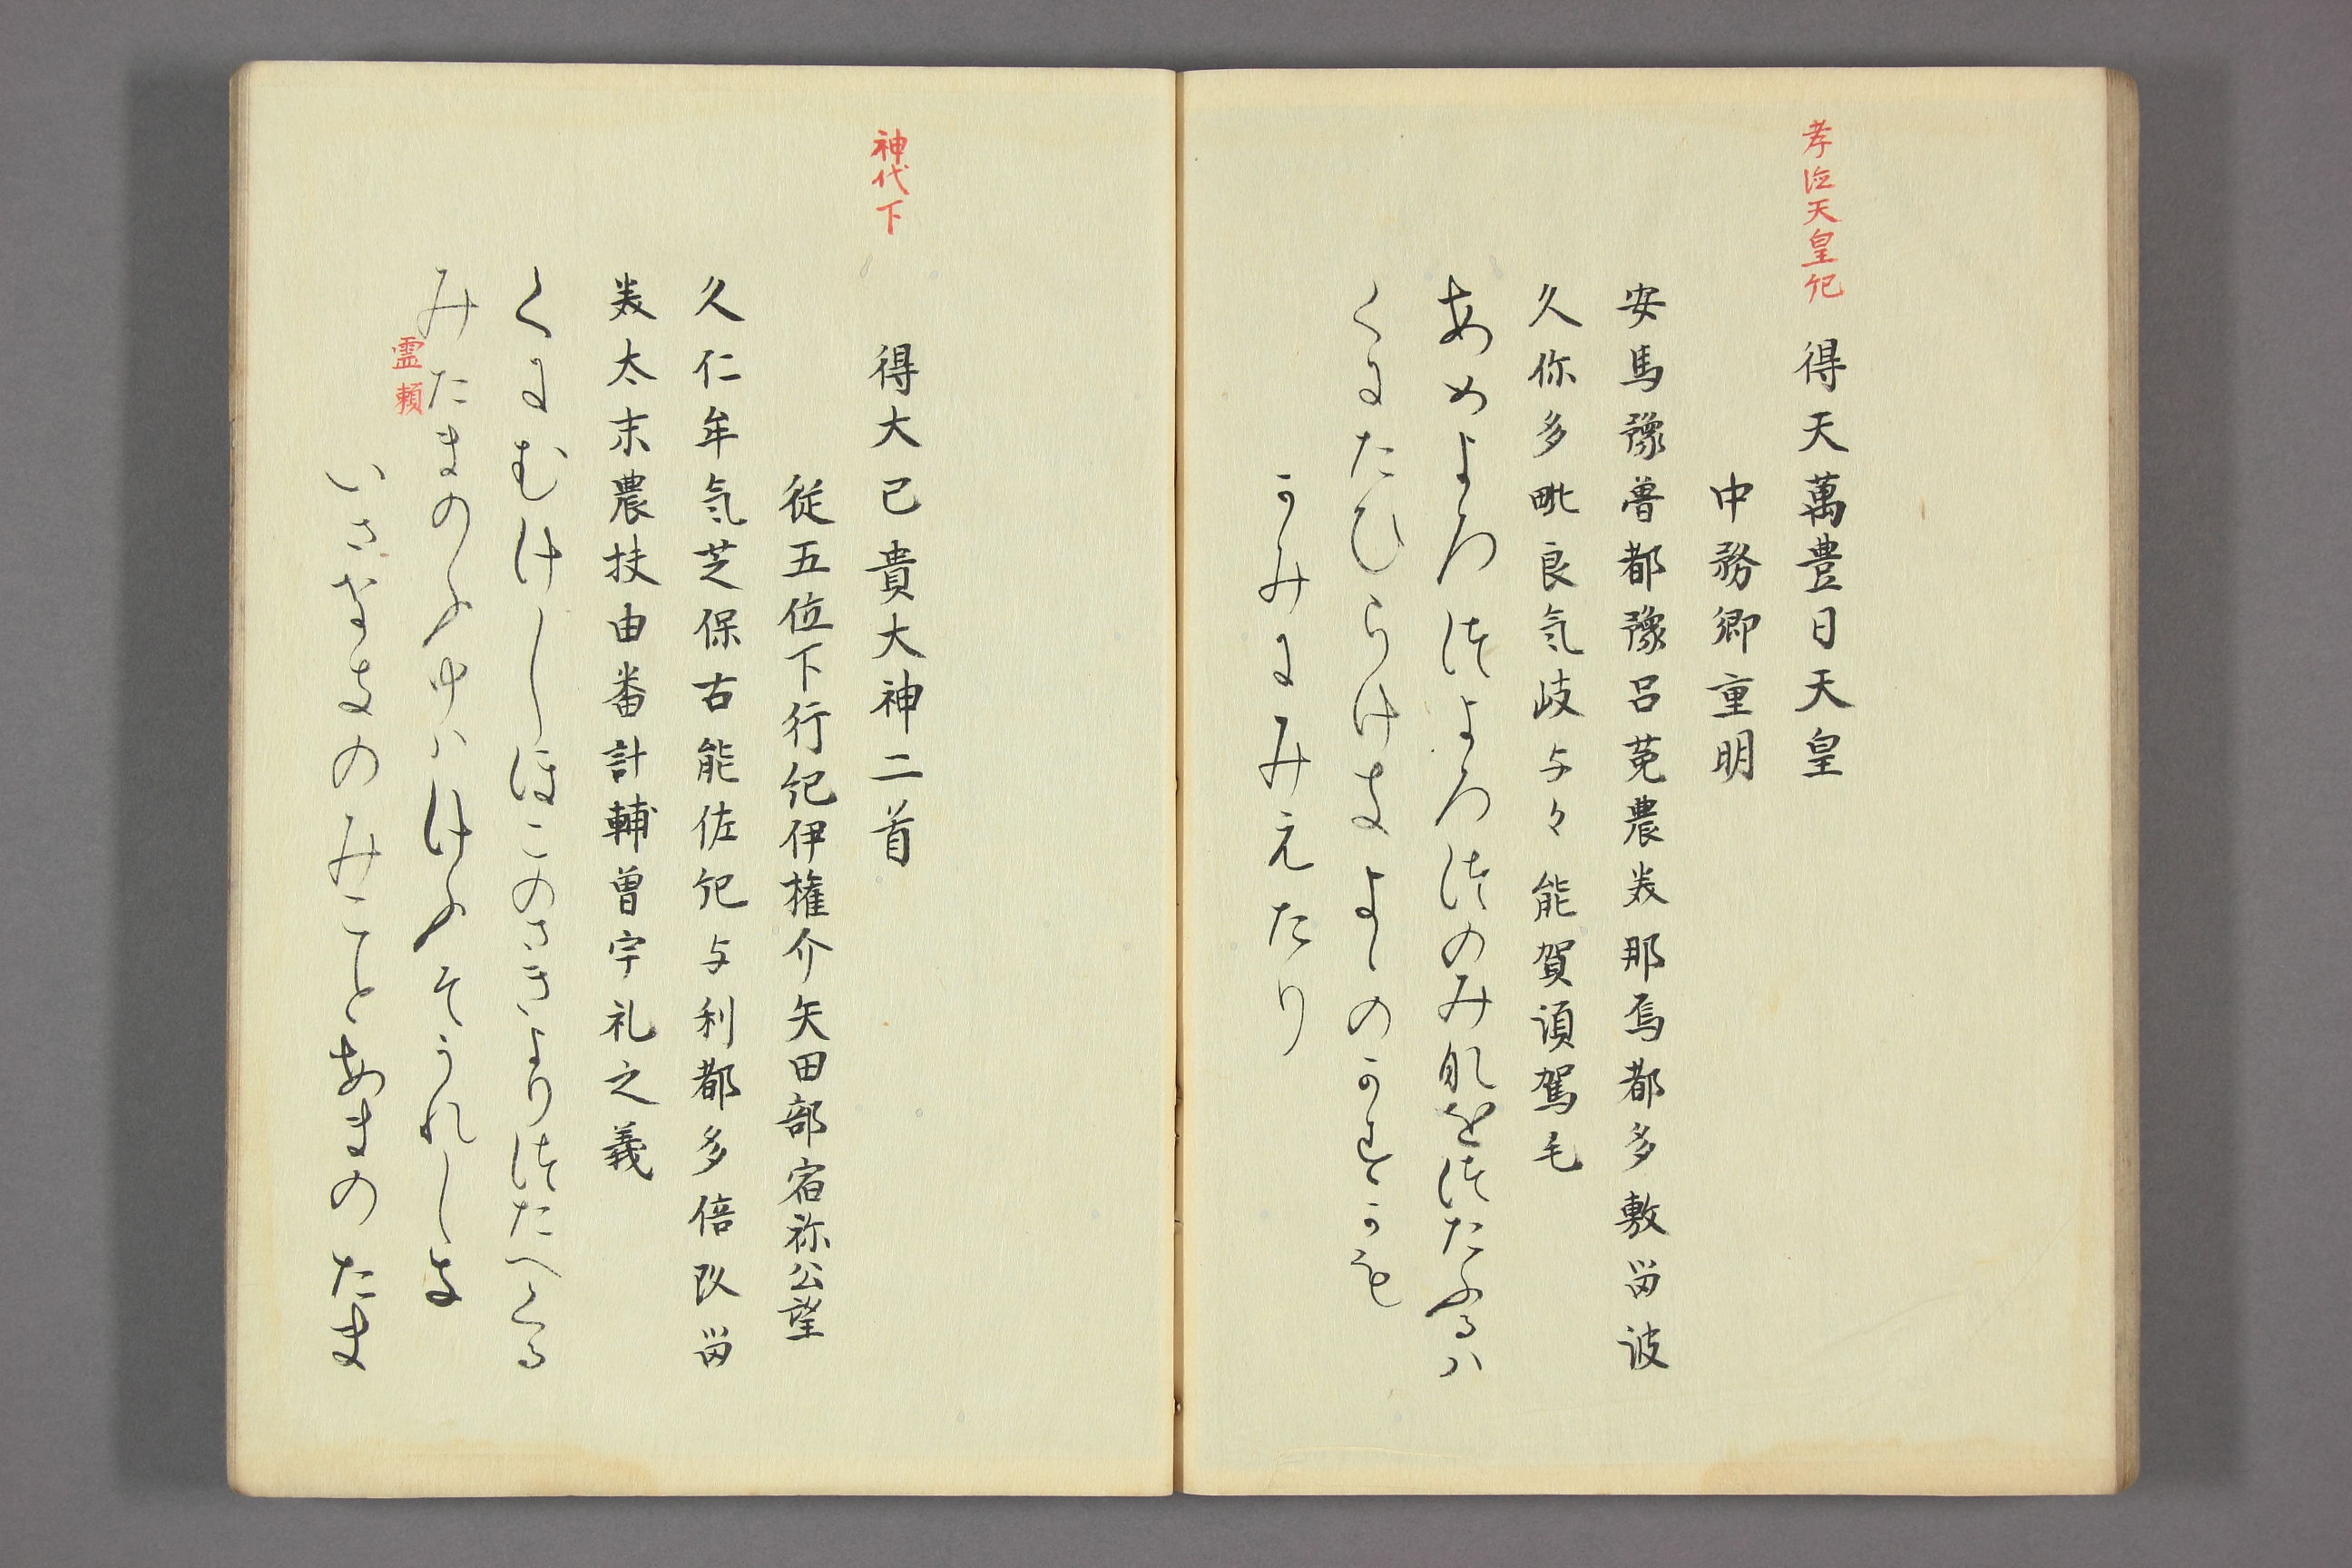 孝徳天皇紀
得天萬豊日天皇
中務卿重明
安馬豫曽都豫呂菟農美那焉都多敷留波
久你多毗良気岐与々能賀須駕毛
あめよろつよろつのみなをつたふるハ
くにたひらけきよゝのかすかも
かみにみえたり
神代下
得大已貴大神二首
従五位下行紀伊権介矢田部宿祢公望
久仁牟気芝保古能佐紀与利都多倍久留
美太末農扶由番計輔曽宇礼之義
くにむけしほこのさきよりつたへくる
みたまのふゆハけふそうれしき
霊頼
いさなきのみことあまのたま